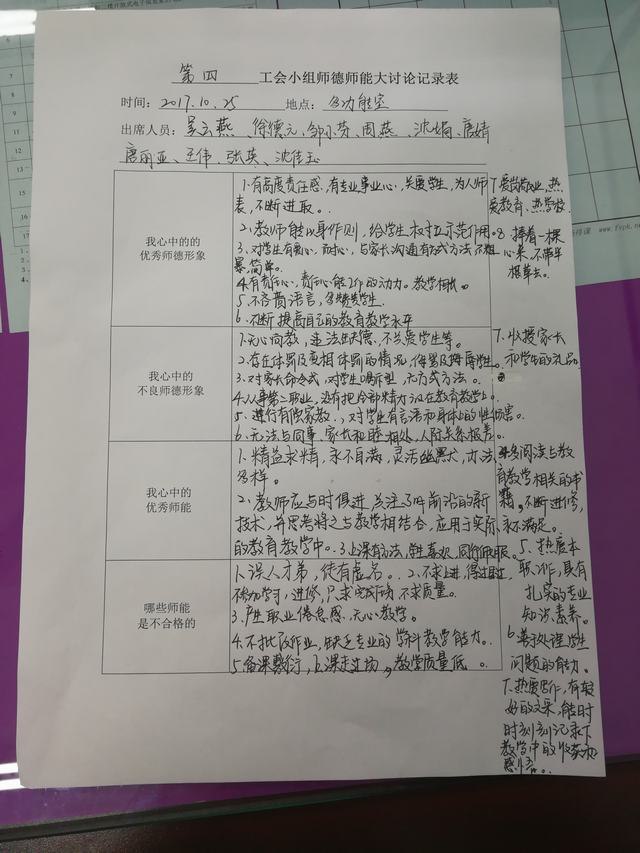 第四 工会小组师德师能大讨论记录表
时间：2017.10.25 地点：多功能室
出席人员：吴云燕、徐德元、邹小芬、周燕、沈娟、唐婧
唐丽亚、王伟、张英、沈佳玉
我心中的的
优秀师德形象
1.有高度责任感，有专业事业心，关爱学生，为人师
表，不断进取。
2、教师能以身作则，给学生树立示范作用。
3.对学生有爱心，耐心，与家长沟通有方式方法，不粗
暴，简单。
4.有责任心，责任心能工作的动力。教学相长。
5.不吝啬语言，多赞赏学生。
6、不断提高自己的教育教学水平
7.爱岗敬业，热
爱教育、热学校
8.捧着一颗
心来，不带半
根草去。
我心中的
不良师德形象
1.无心向教，违法缺德，不关爱学生等。
2.存在体罚及变相体罚的情况，侮辱学生。
3.对家长命令式，对学生喝斥型，无方式方法。
4.从事第二职业，没有把全部精力放在教育教学上。
5、进行有偿家教，对学生有言语和身体上的伤害。
6.无法与同事、家长和睦相处，人际关系极差。
7、收授家长
和学生的礼品
我心中的
优秀师能
1、精益求精，永不自满，灵活幽默大，办法
多样。
2、教师应与时俱进，关注前沿的新
技术，并思考将之与教学相结合，应用于实际
的教育教学中。3.上课有方法，学生喜欢，同行佩服。
4.多阅读与教
育教学相关的书
籍，不断进修，
永不满足。
5、热爱本
职工作，具有
扎实的专业
知识素养。
6、善于处理学生
问题的能力。
7、热爱写作，有较
好的文采，能时
时刻刻记录下
教学中的收获和
感悟。
哪些师能
是不合格的
1.误人子弟，徒有虚名。2、不求上进，得过且过，
不参加学习，进修，只求完成任务，不求质量。
3、产生职业倦怠感，无心教学。
4、不批改作业，缺乏专业的学科教学能力。
5.备课敷衍，上课走过场，教学质量低。